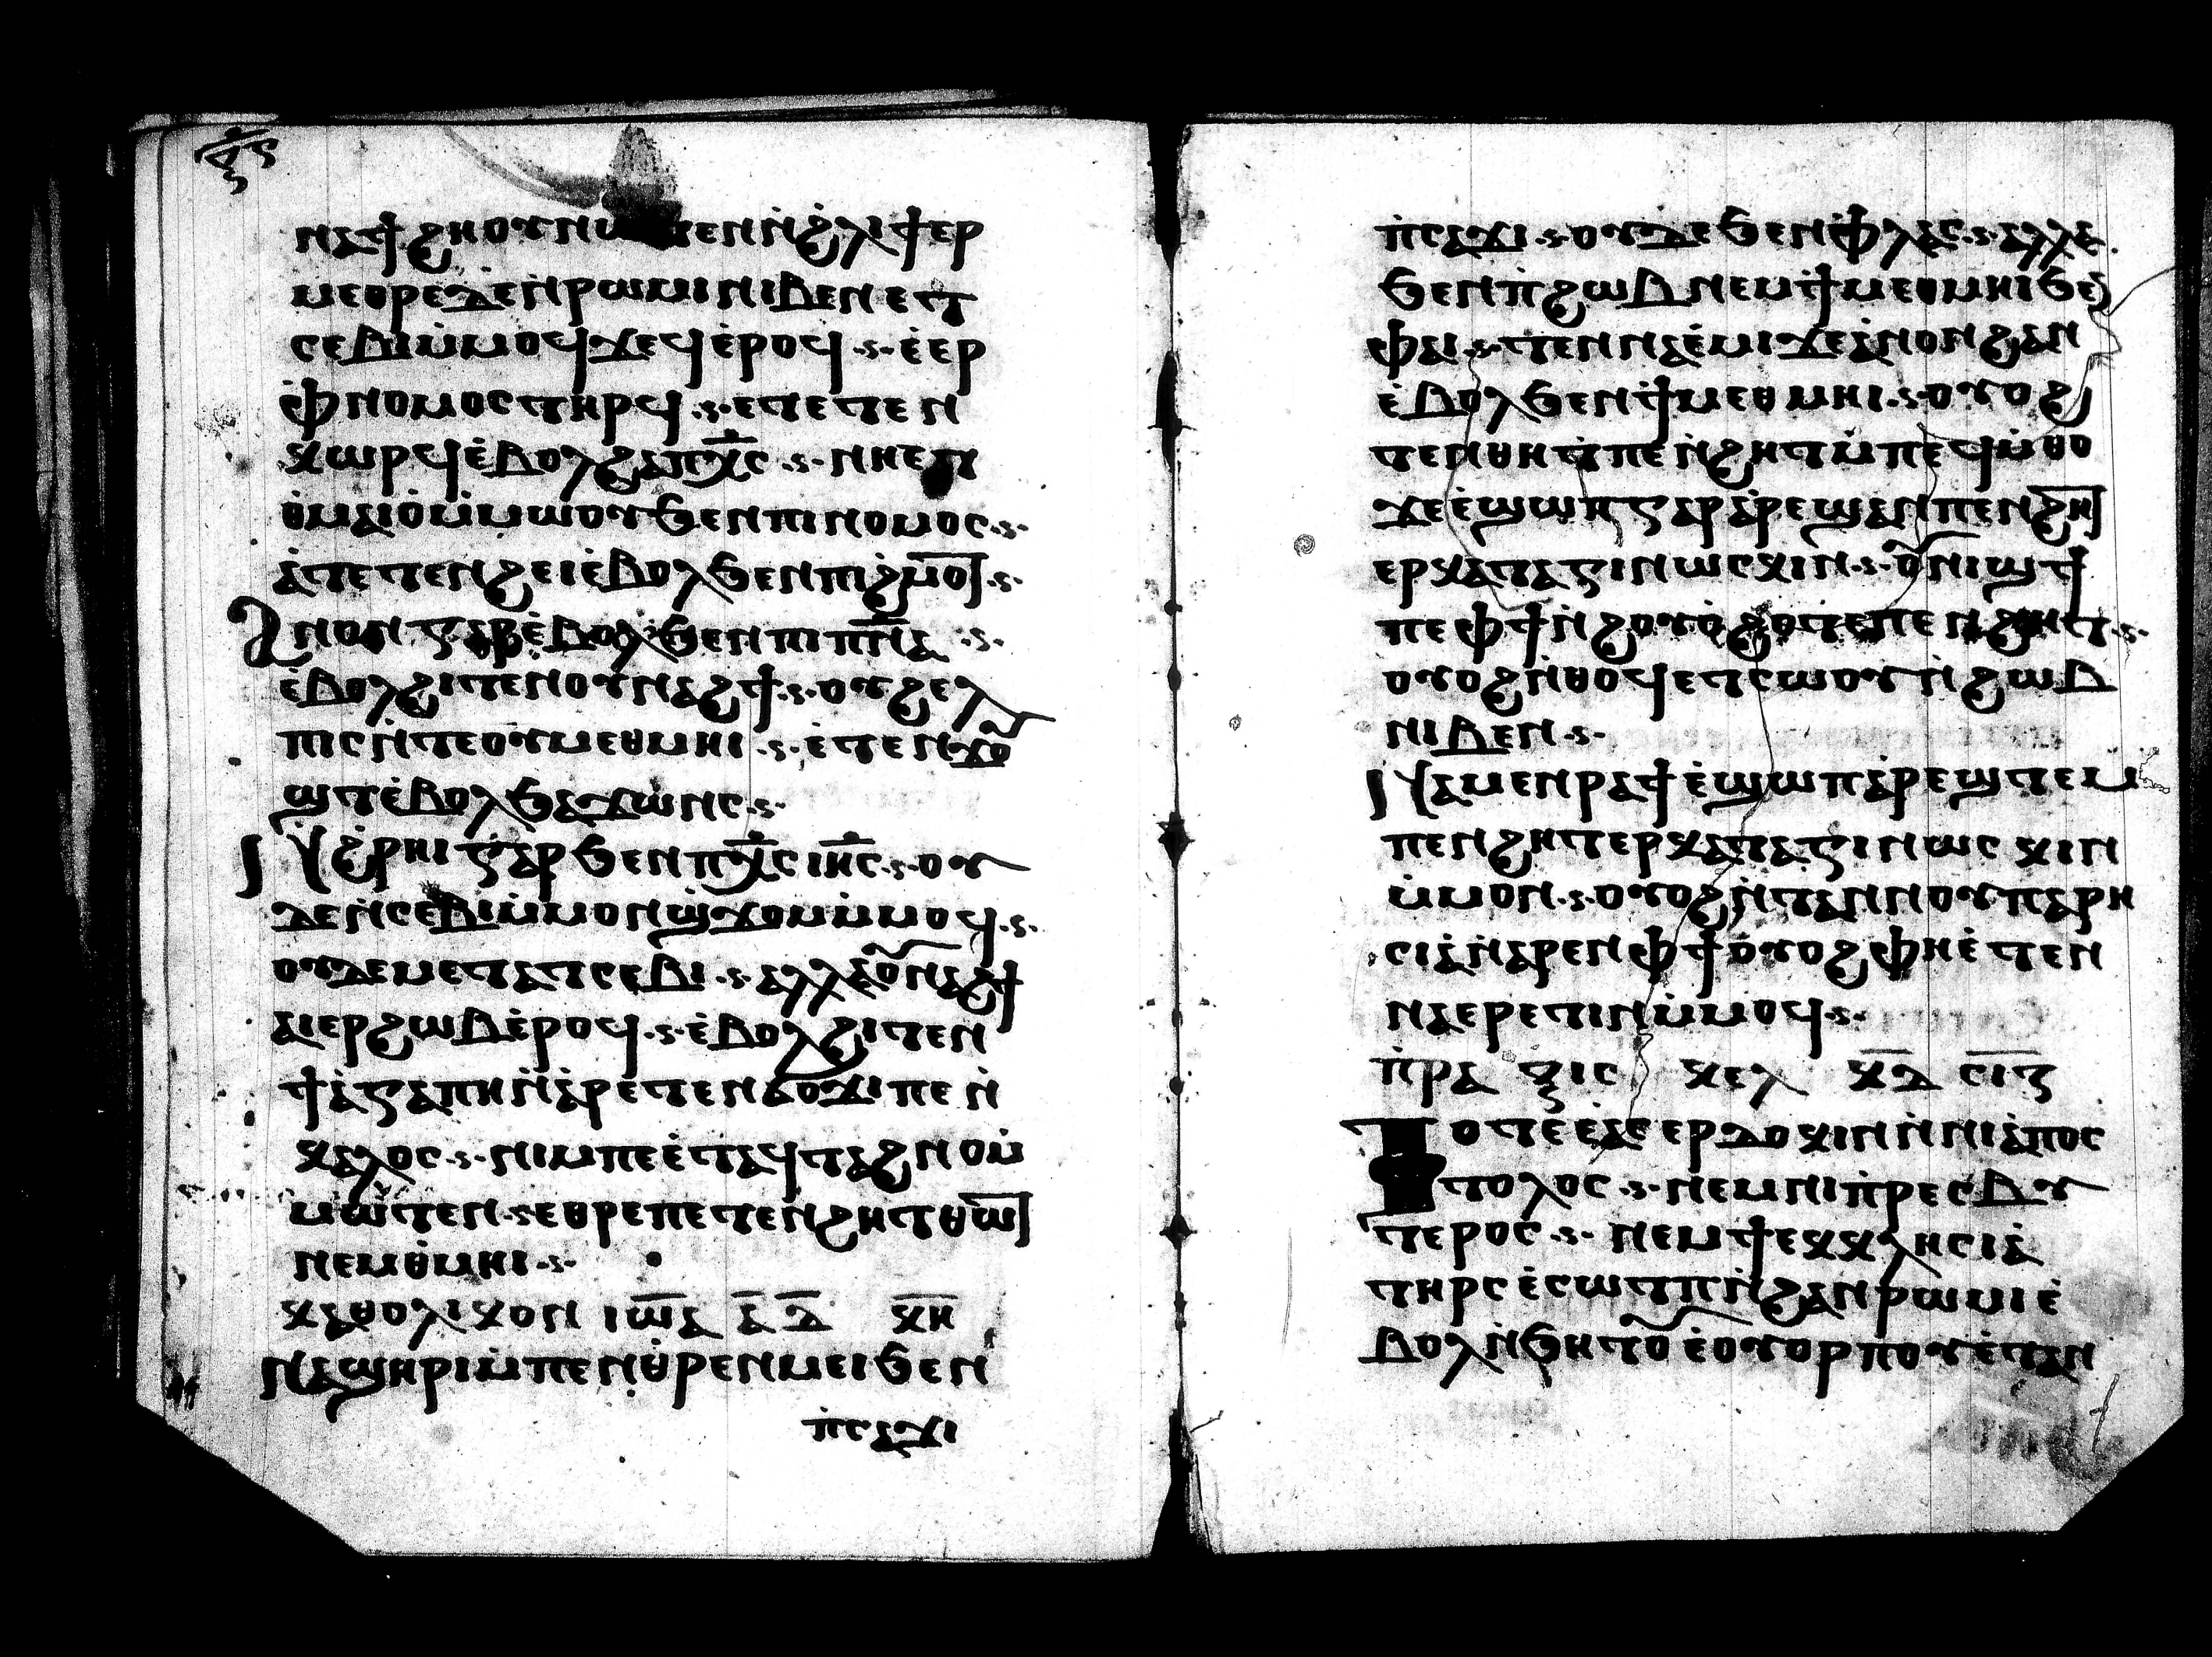 ⲝⲋ
ⲛⲁϯϩⲏⲟⲩ ⲛⲱⲧⲉⲛ ⲛ̀ϩⲗⲓ ϯⲉⲣ
ⲙⲉⲑⲣⲉ ⲇⲉ ⲛ̀ⲣⲱⲙⲓ ⲛⲓⲃⲉⲛ ⲉⲧ
ⲥⲉⲃⲓ ⲙ̀ⲙⲟϥ ϫⲉ ϥ̀ⲉⲣⲟϥ ·ⲋ· ⲉ̀ⲉⲣ
ⲫ̀ⲛⲟⲙⲟⲥ ⲧⲏⲣϥ ·ⲋ· ⲉⲧⲉⲧⲉⲛ
ⲕⲱⲣϥ ⲉ̀ⲃⲟⲗ ϩⲁ ⲡⲭ̅ⲥ ·ⲋ· ⲛⲏⲉⲧ
ⲑ̀ⲙⲁⲓⲟ̀ ⲙ̀ⲙⲱⲟⲩ ϧⲉⲛ ⲡⲓⲛⲟⲙⲟⲥ ·ⲋ·
ⲁ̀ⲧⲉⲧⲉⲛϩⲉⲓ ⲉ̀ⲃⲟⲗ ϧⲉⲛ ⲡⲓϩ̀ⲙⲟⲧ ·ⲋ·
ⲁⲛⲟⲛ ⲅⲁⲣ ⲉ̀ⲃⲟⲗ ϧⲉⲛ ⲡⲓⲡ̅ⲛ̅ⲁ ·ⲋ·
ⲉ̀ⲃⲟⲗ ϩⲓⲧⲉⲛ ⲟⲩⲛⲁϩϯ ·ⲋ· ⲟⲩϩⲉⲗ
ⲡⲓⲥ ⲛ̀ⲧⲉ ⲟⲩⲙⲉⲑⲙⲏⲓ ·ⲋ· ⲉ̀ⲧⲉⲛϫⲟⲩ
ϣⲧ ⲉ̀ⲃⲟⲗ ϧⲁϫⲱⲛⲥ ·ⲋ·
ⲛ̀ϩ̀ⲣⲏⲓ ⲅⲁⲣ ϧⲉⲛ ⲡⲭ̅ⲥ ⲓⲏ̅ⲥ ·ⲋ· ⲟⲩ
ⲇⲉ ⲛ̀ⲥⲉⲃⲓ ⲙ̀ⲙⲟⲛ ϣϫⲟⲙ ⲙ̀ⲙⲟϥ ·ⲋ·
ⲟⲩⲇⲉ ⲙⲉⲧⲁⲧⲥⲉⲃⲓ ·ⲋ· ⲁⲗⲗⲁ ⲟⲩⲛⲁϩϯ
ⲁⲓⲉⲣϩⲱⲃ ⲉ̀ⲣⲟϥ ·ⲋ· ⲉ̀ⲃⲟⲗ ϩⲓⲧⲉⲛ
ϯⲁ̀ⲅⲁⲡⲏ ⲛ̀ⲁⲣⲉⲧⲉⲛϭⲟϫⲓ ⲡⲉ ⲛ̀
ⲕⲁⲗⲟⲥ ·ⲋ· ⲛⲓⲙ ⲡⲉ ⲉ̀ⲧⲁϥⲧⲁϩⲛⲟ ⲙ̀
ⲙⲱⲧⲉⲛ ·ⲋ· ⲉⲑⲣⲉ ⲡⲉⲧⲉⲛϩⲏⲧ ⲑⲱⲧ
ⲛⲉⲙ ⲑ̀ⲙⲏⲓ ·ⲋ·
ⲕⲁⲑⲟⲗⲓⲕⲟⲛ ⲓⲱ̅ⲁ ⲁ̅ ⲇ̅ ⲕⲏ̅
ⲛⲁϣⲏⲣⲓ ⲙ̀ⲡⲉⲛⲑ̀ⲣⲉⲛⲙⲉⲓ ϧⲉⲛ
ⲡ̀ⲥⲁϫⲓ
ⲡ̀ⲥⲁϫⲓ ·ⲋ· ⲟⲩⲇⲉ ϧⲉⲛ ⲫ̀ⲗⲁⲥ ·ⲋ· ⲁⲗⲗⲁ
ϧⲉⲛ ⲡ̀ϩⲱⲃ ⲛⲉⲙ ϯⲙⲉⲑⲙⲏⲓ ϧⲉⲛ
ⲫⲁⲓ ·ⲋ· ⲧⲉⲛⲛⲁⲉ̀ⲙⲓ ϫⲉ ⲁ̀ⲛⲟⲛ ϩⲁⲛ
ⲉ̀ⲃⲟⲗ ϧⲉⲛ ϯⲙⲉⲑⲙⲏⲓ ·ⲋ· ⲟⲩⲟϩ
ⲧⲉⲛⲑⲏⲧ ⲡⲉⲛ̀ϩⲏⲧ ⲙ̀ⲡⲉϥⲙ̀ⲑⲟ
ϫⲉ ⲉ̀ϣⲱⲡ ⲅⲁⲣ ⲁ̀ⲣⲉϣⲁⲛ ⲡⲉⲛϩⲏⲧ
ⲉⲣⲕⲁⲧⲁⲅⲓⲛⲱⲥⲕⲓⲛ ·ⲋ· ⲟⲩⲛⲓϣϯ
ⲡⲉ ⲫϯ ⲛ̀ϩⲟⲩⲟ̀ ϩⲟⲧⲉ ⲡⲉⲛϩⲏⲧ ·ⲋ·
ⲟⲩⲟϩ ⲛ̀ⲑⲟϥ ⲉⲧⲥⲱⲟⲩⲛ ⲛ̀ϩⲱⲃ
ⲛⲓⲃⲉⲛ ·ⲋ·
ⲛⲁⲙⲉⲛⲣⲁϯ ⲉ̀ϣⲱⲡ ⲁ̀ⲣⲉϣⲧⲉⲙ
ⲡⲉⲛϩⲏⲧ ⲉⲣⲕⲁⲧⲁⲅⲓⲛⲱⲥⲕⲓⲛ
ⲙ̀ⲙⲟⲛ ·ⲋ· ⲟⲩⲟϩ ⲛ̀ⲧⲁⲛ ⲛⲟⲩⲡⲁⲣⲏ
ⲥⲓⲁ̀ ⲛ̀ⲁⲣⲉⲛ ⲫϯ ⲟⲩⲟϩ ⲫⲏ ⲉ̀ⲧⲉⲛ
ⲛⲁⲉⲣⲉⲧⲓⲛ ⲙ̀ⲙⲟϥ ·ⲋ·
ⲡ̀ⲣⲁⲝⲓⲥ ⲕⲉⲗ ⲕ̅ⲇ̅ ⲥⲓⲅ̅
ⲧⲟⲧⲉ ⲉⲁⲥⲉⲣⲇⲟⲕⲓⲛ ⲛ̀ⲛⲓⲁ̀ⲡⲟⲥ
ⲧⲟⲗⲟⲥ ·ⲋ· ⲛⲉⲙ ⲛⲓⲡ̀ⲣⲉⲥⲃⲩ
ⲧⲉⲣⲟⲥ ·ⲋ· ⲛⲉⲙ ϯⲉⲕⲕⲗⲏⲥⲓⲁ̀
ⲧⲏⲣⲥ ⲉ̀ⲥⲱⲧⲡ ⲛ̀ϩⲁⲛⲣⲱⲙⲓ ⲉ̀
ⲃⲟⲗ ⲛ̀ϧⲏⲧⲟⲩ ⲉ̀ⲟⲩⲟⲣⲡⲟⲩ ⲉ̀ⲧⲁⲛ